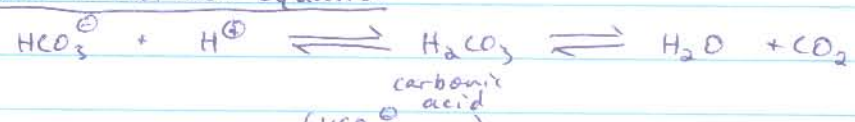 HCO₃⊖ + H⊕ ⇌ H₂CO₃ ⇌ H₂O + CO₂
carbonic
acid